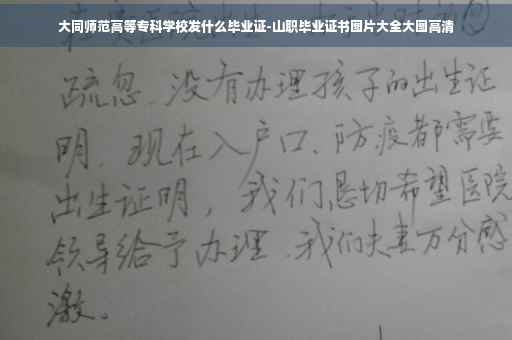 大同师范高等专科学校发什么毕业证-山职毕业证书图片大全大图高清
疏忽、没有办理孩子的出生证
明、现在入户口、防疫都需要
出生证明，我们恳切希望医院
领导给予办理、我们夫妻万分感
激。